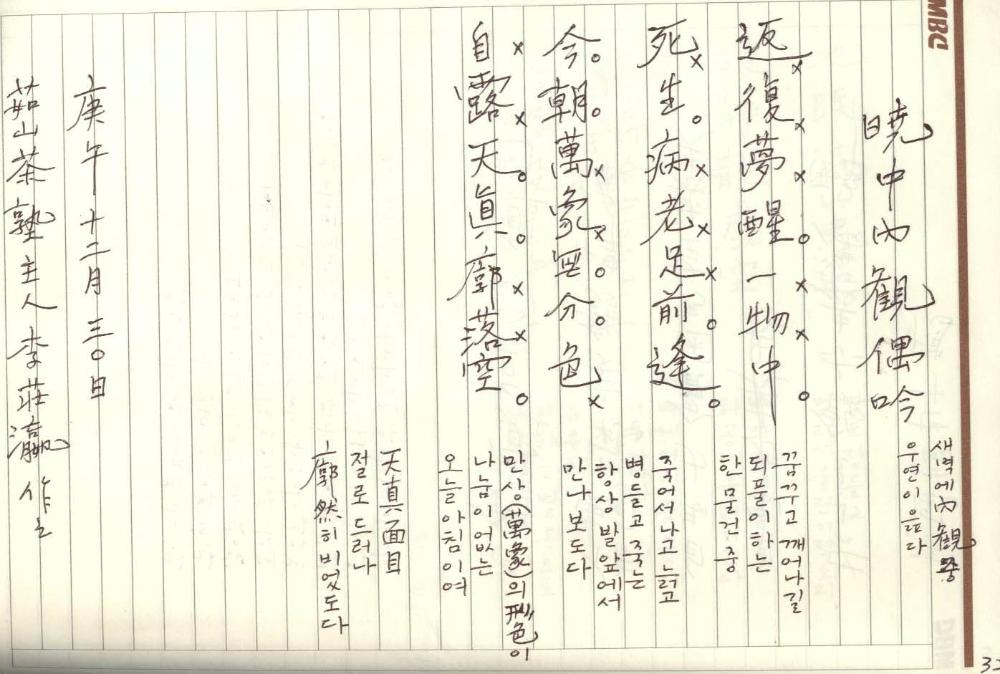 MBC
曉中內觀偶吟
새벽에 內觀 중
우연이 읊다
返復夢醒一物中
死生病老足前逢
今朝萬象無分色
自露天眞廓落空
꿈꾸고 깨어나길
되풀이하는
한 물건 중
죽어서 나고 늙고
병들고 죽는
항상 발 앞에서
만나 보도다
만상(萬象)의 形色이
나눔이 없는
오늘 아침이여
天真面目
절로 드러나
廓然히 비었도다
庚午 十二月 三〇日
茹山茶塾主人 李莊瀛 作之
32